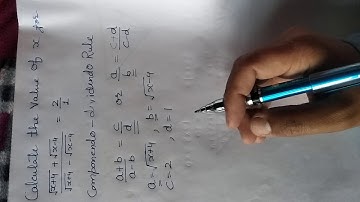 Calculate the value of x for
√x+4 + √x-4 / √x+4 - √x-4 = 2/1
Componendo-dividendo Rule
a+b/a-b = c/d or a/b = c+d/c-d
a=√x+4, b=√x-4
c=2, d=1